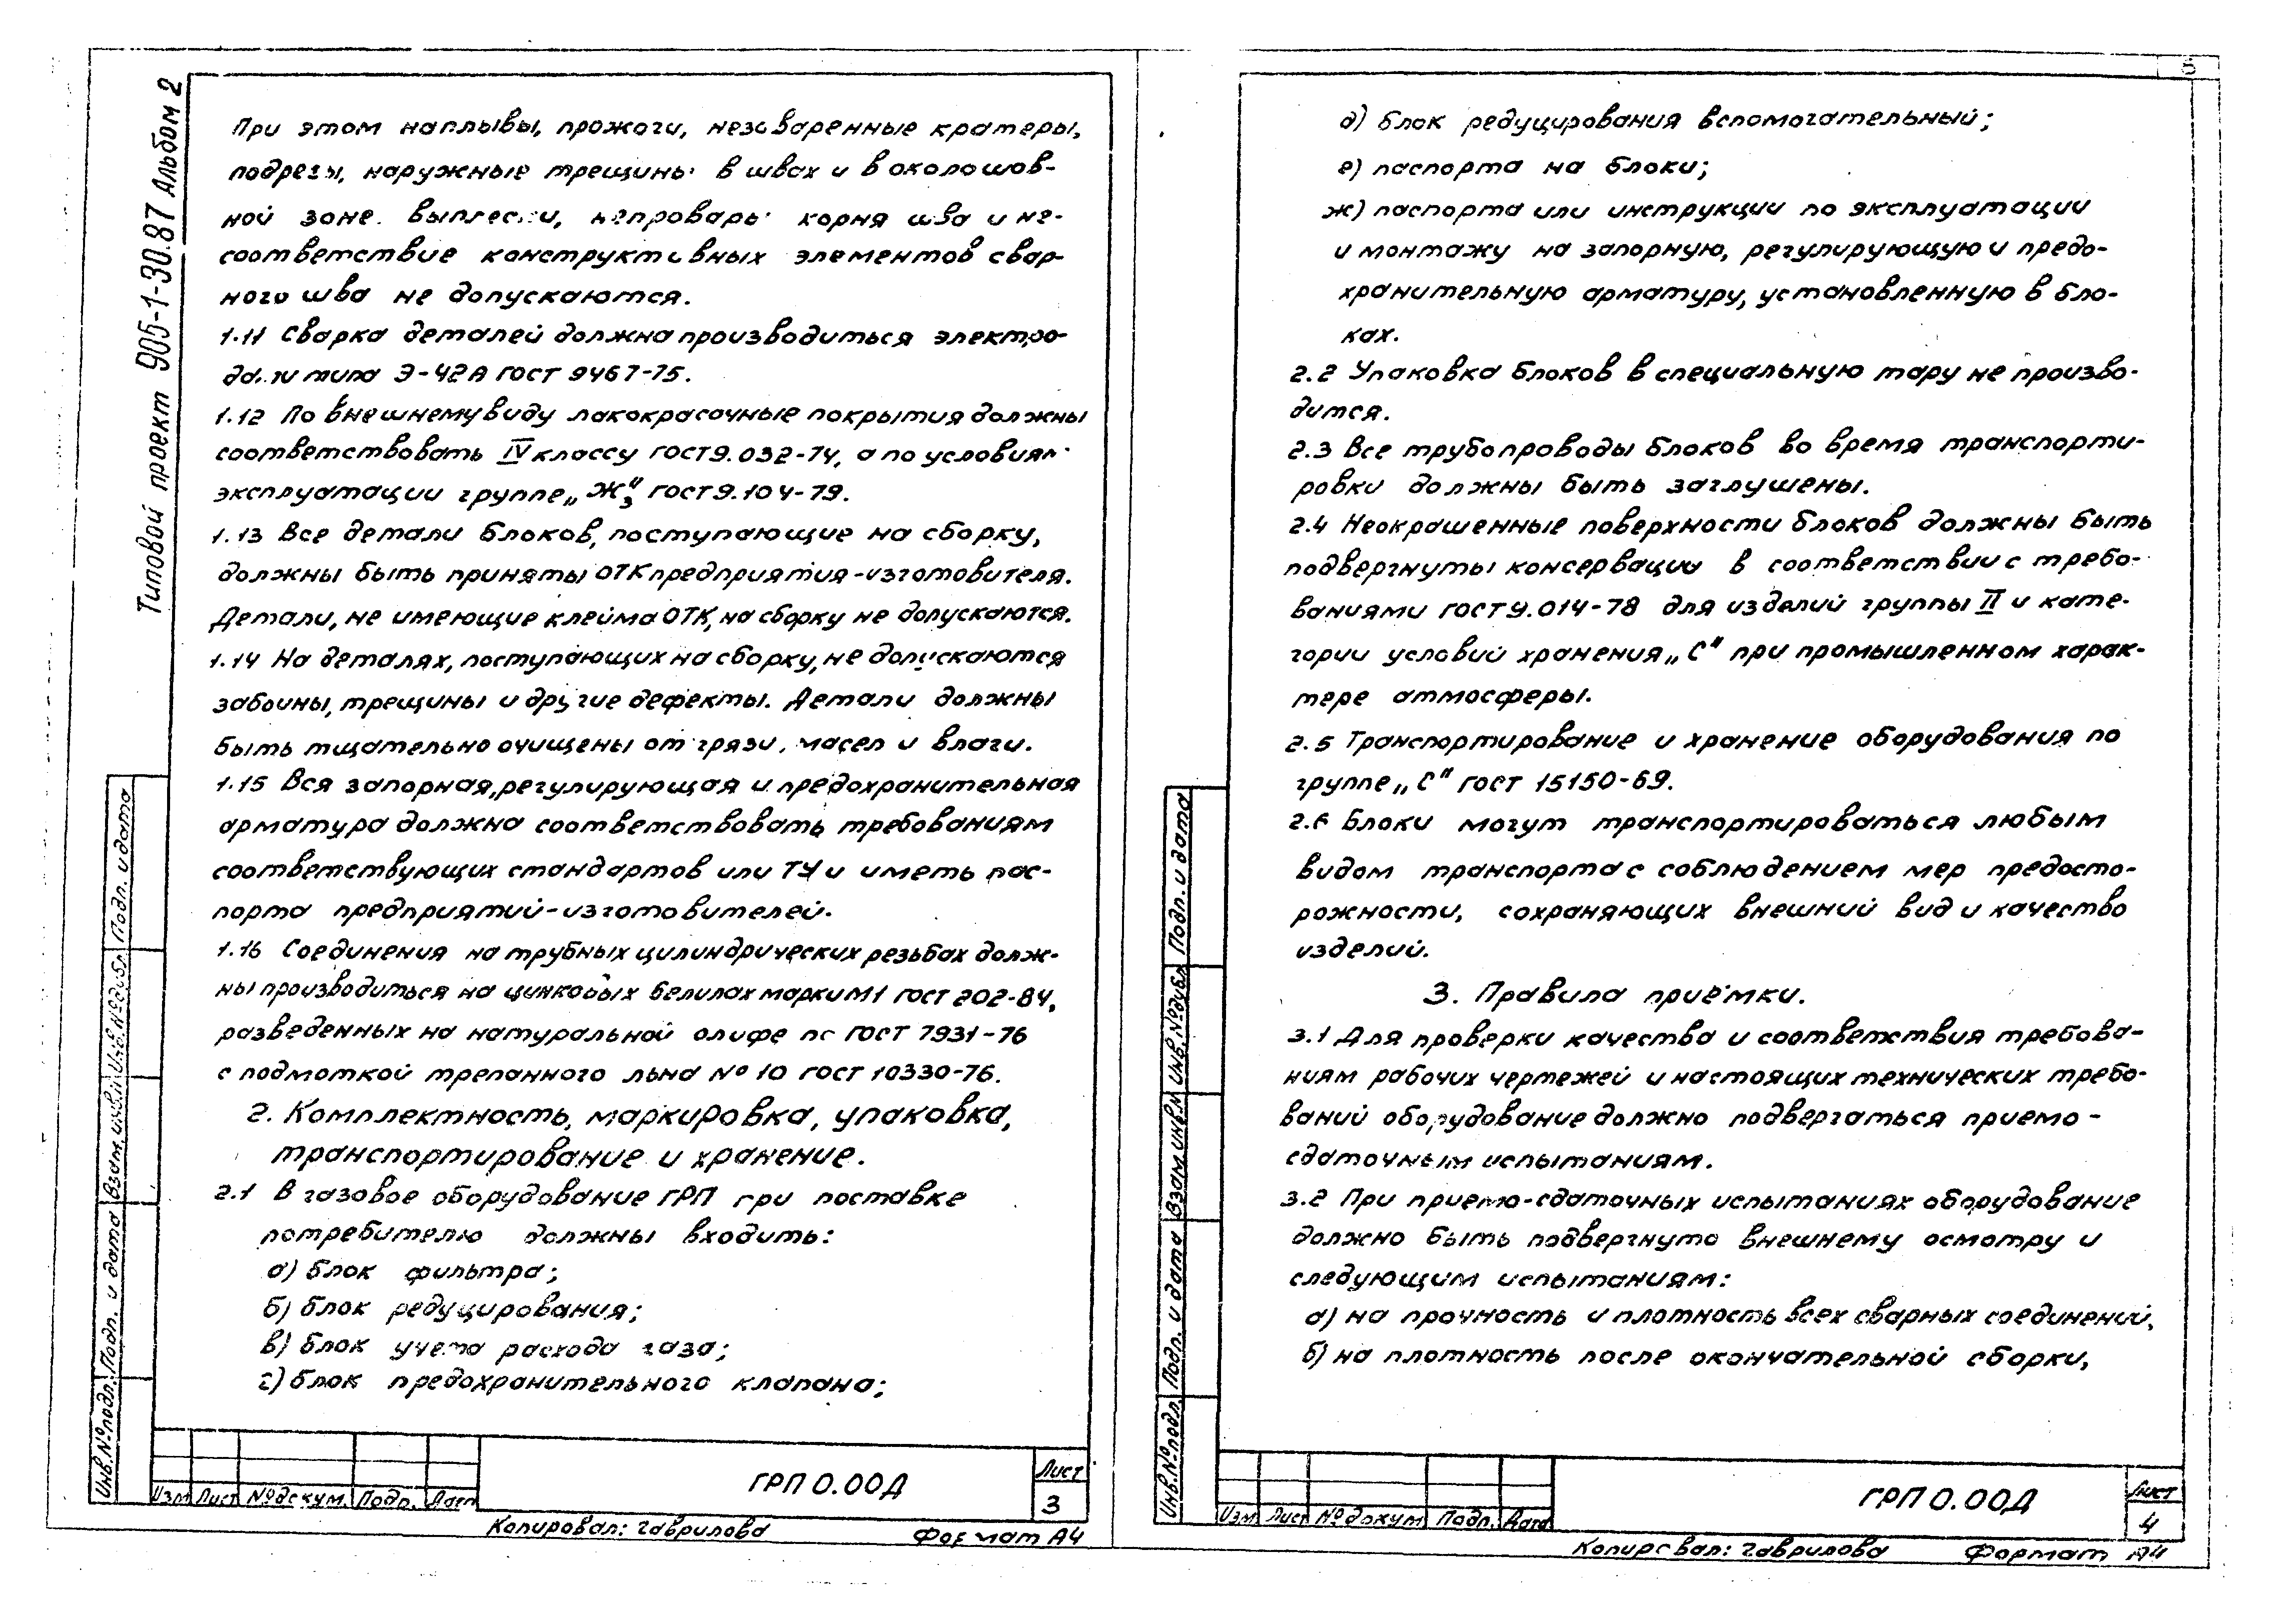 Типовой проект 905-1-30.87 Альбом 2
При этом наплывы, прожоги, незаваренные кратеры,
подрезы, наружные трещины в швах и в околошов-
ной зоне, выплески, непровары корня шва и не-
соответствие конструктивных элементов свар-
ного шва не допускаются.
1.11 Сварка деталей должна производиться электро-
дами типа Э-42А ГОСТ 9467-75.
1.12 По внешнему виду лакокрасочные покрытия должны
соответствовать IV классу ГОСТ 9.032-74, а по условиям
эксплуатации группе „Ж3“ ГОСТ 9.104-79.
1.13 Все детали блоков, поступающие на сборку,
должны быть приняты ОТК предприятия-изготовителя.
Детали, не имеющие клейма ОТК, на сборку не допускаются.
1.14 На деталях, поступающих на сборку, не допускаются
забоины, трещины и другие дефекты. Детали должны
быть тщательно очищены от грязи, масел и влаги.
1.15 Вся запорная, регулирующая и предохранительная
арматура должна соответствовать требованиям
соответствующих стандартов или ТУ и иметь пас-
порта предприятий-изготовителей.
1.16 Соединения на трубных цилиндрических резьбах долж-
ны производиться на цинковых белилах марки М1 ГОСТ 202-84,
разведенных на натуральной олифе по ГОСТ 7931-76
с подмоткой трепанного льна №10 ГОСТ 10330-76.
2. Комплектность, маркировка, упаковка,
транспортирование и хранение.
2.1 В газовое оборудование ГРП при поставке
потребителю должны входить:
а) блок фильтра;
б) блок редуцирования;
в) блок учета расхода газа;
г) блок предохранительного клапана;
Инв.№подл. Подп. и дата Взам.инв.№ Инв.№дубл Подп. и дата
Изм Лист №докум. Подп. Дата
ГРП 0.00Д
Лист
3
Копировал: Гаврилова Формат А4
5
д) блок редуцирования вспомогательный;
е) паспорта на блоки;
ж) паспорта или инструкции по эксплуатации
и монтажу на запорную, регулирующую и предо-
хранительную арматуру, установленную в бло-
ках.
2.2 Упаковка блоков в специальную тару не произво-
дится.
2.3 Все трубопроводы блоков во время транспорти-
ровки должны быть заглушены.
2.4 Неокрашенные поверхности блоков должны быть
подвергнуты консервации в соответствии с требо-
ваниями ГОСТ 9.014-78 для изделий группы II и кате-
гории условий хранения „С“ при промышленном харак-
тере атмосферы.
2.5 Транспортирование и хранение оборудования по
группе „С“ ГОСТ 15150-69.
2.6 Блоки могут транспортироваться любым
видом транспорта с соблюдением мер предосто-
рожности, сохраняющих внешний вид и качество
изделий.
3. Правила приёмки.
3.1 Для проверки качества и соответствия требова-
ниям рабочих чертежей и настоящих технических требо-
ваний оборудование должно подвергаться приемо-
сдаточным испытаниям.
3.2 При приемо-сдаточных испытаниях оборудование
должно быть подвергнуто внешнему осмотру и
следующим испытаниям:
а) на прочность и плотность всех сварных соединений,
б) на плотность после окончательной сборки,
Инв.№подл. Подп. и дата Взам.инв.№ Инв.№дубл Подп. и дата
Изм Лист №докум Подп. Дата
ГРП 0.00Д
Лист
4
Копировал: Гаврилова Формат А4